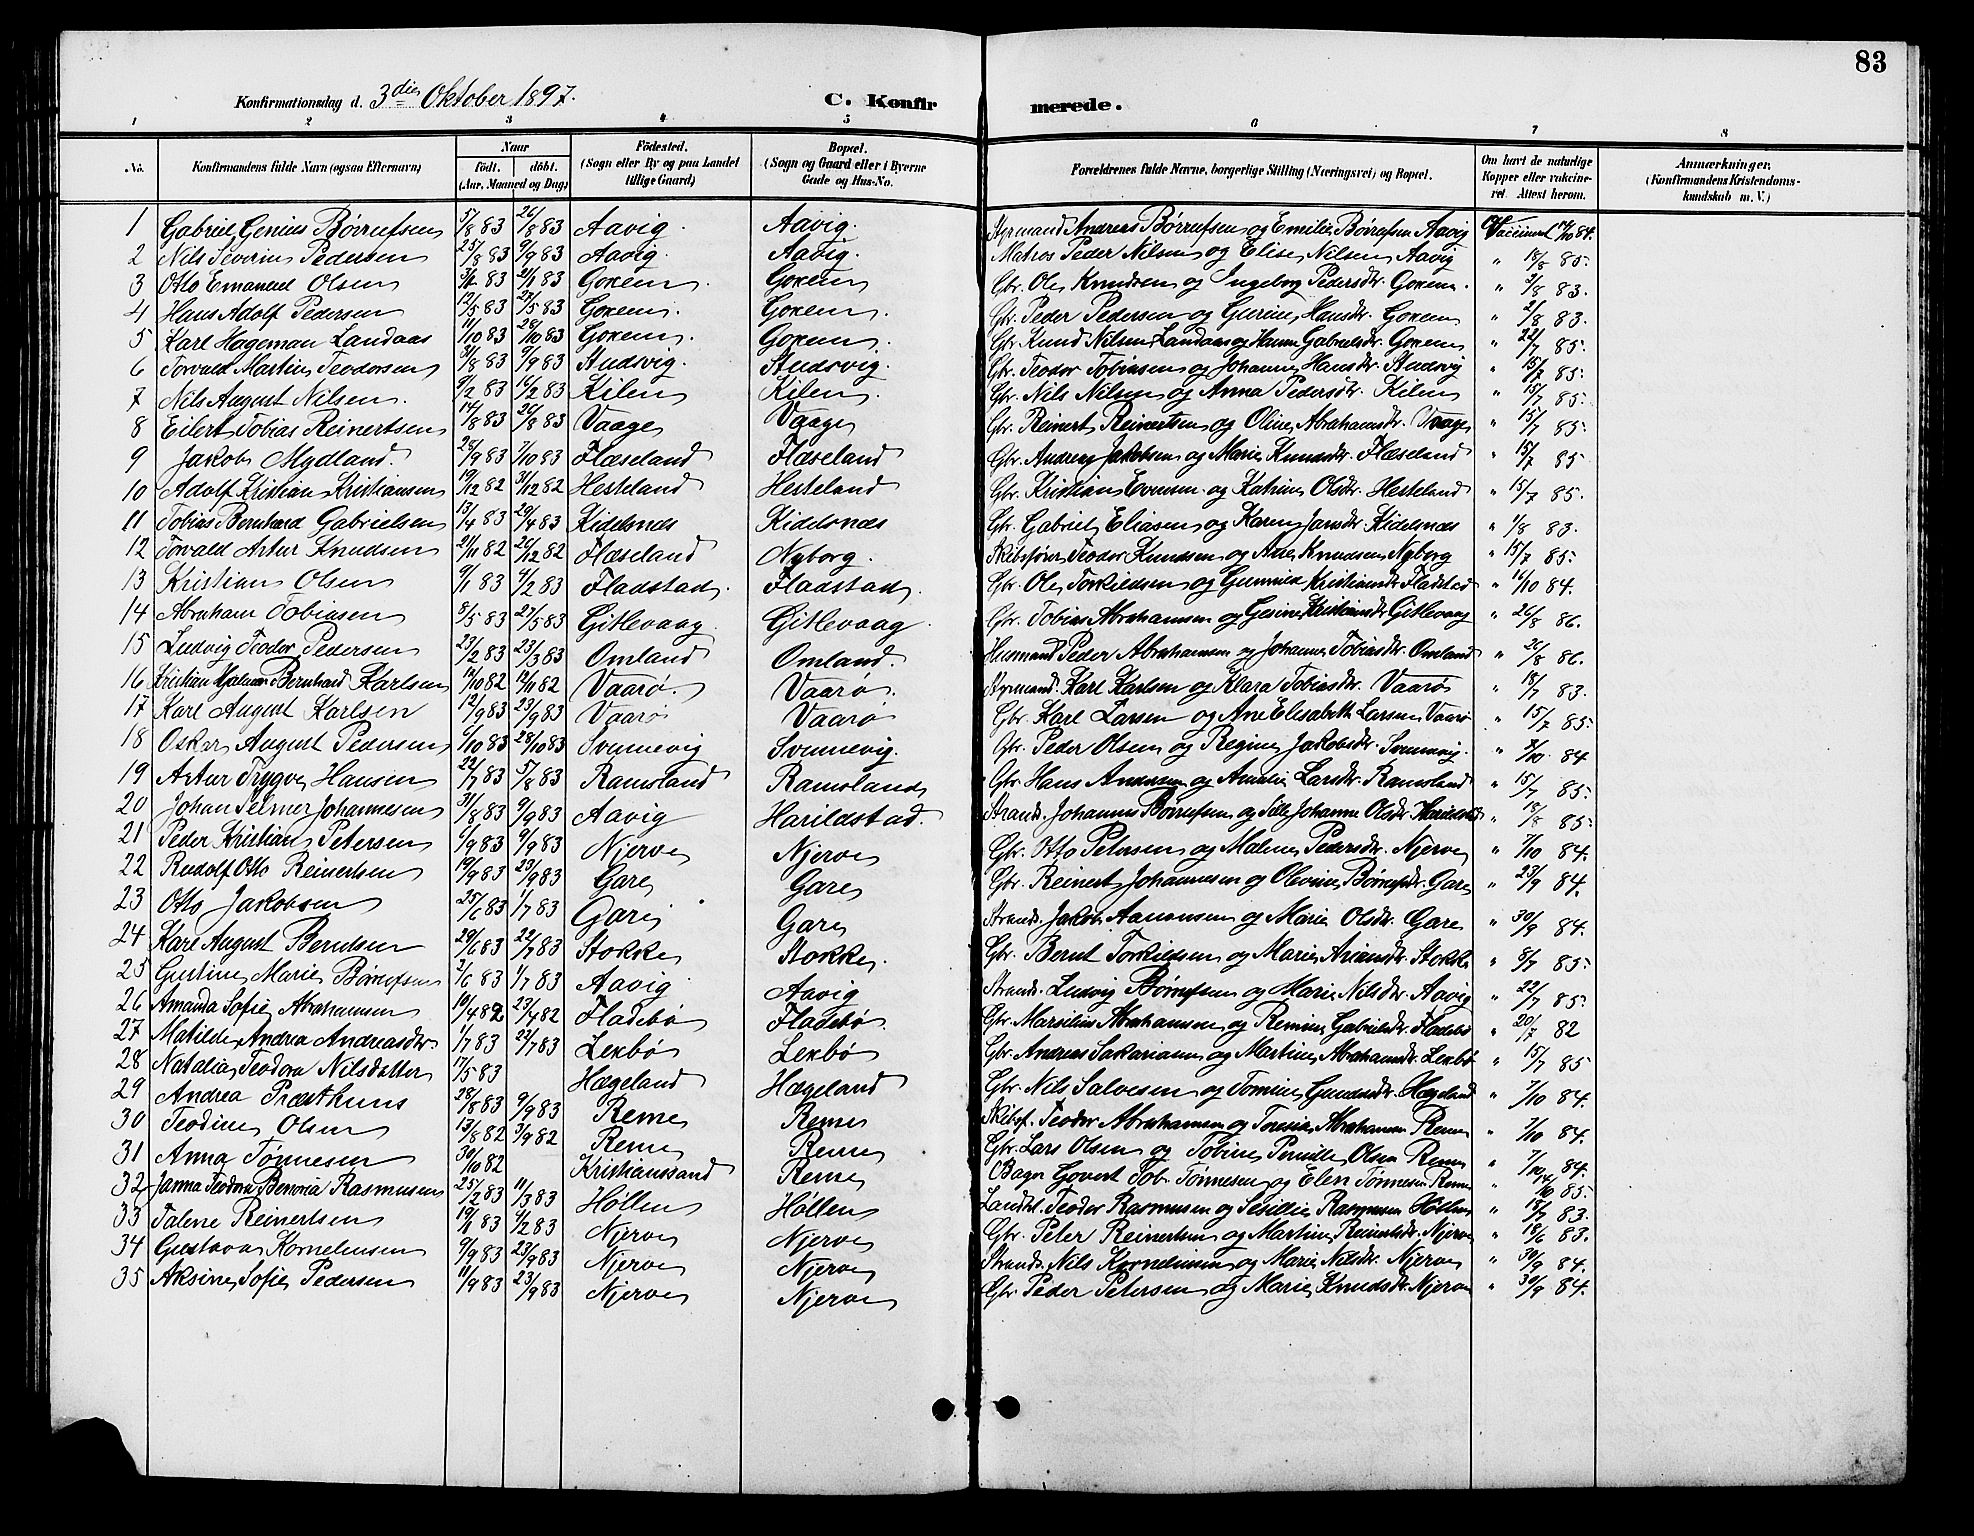 83
Konfirmationsdag d. 3die Oktober 1897. C. Konfirmerede.
1 2 3 4 5 6 7 8
No. Konfirmandens fulde Navn (ogsaa Efternavn) Naar født. døbt. (Aar, Maaned og Dag) Fødested. (Sogn eller By og paa Landet tillige Gaard) Bopæl. (Sogn og Gaard eller i Byerne Gade og Hus-No. Forældrenes fulde Navne, borgerlige Stilling (Næringsvei) og Bopæl. Om havt de naturlige Kopper eller vakcineret. Attest herom. Anmærkninger, (Konfirmandens Kristendomskundskab m. V.)
1 Gabriel Genius Børrufsen 5/8 83 26/8 83 Aavig Aavig. Styrmand Andreas Børrufsen og Emilie Børrufsen Aavig Vaccineret 14/10 84.
2 Nils Severin Pedersen 25/8 83 9/9 83 Aavig. Aavig. Matros Peder Nilsen og Elise Nilsen Aavig " 18/8 85.
3 Otto Emanuel Olsen 83 21/1 83 Goxem. Goxem Gbr. Ole Knudsen og Ingeborg Pedersdtr. Goxem. " 2/8 83.
4 Hans Adolf Pedersen 12/5 83 27/5 83 Goxem. Goxem. Gbr. Peder Pedersen og Gurine Hansdtr. Goxem " 2/8 83.
5 Karl Hageman Landaas 11/10 83 28/10 83 Goxem. Goxem. Gbr. Knud Nilsen Landaas og Hanne Gabrielsdtr. Goxem " 22/7 85.
6 Torvald Martin Teodorsen 31/8 83 9/9 83 Studsvig. Studsvig. Gbr. Teodor Tobiasen og Johanne Hansdtr. Studsvig " 15/7 85.
7 Nils August Nilsen. 9/2 83 16/2 83 Kilen Kilen. Gbr. Nils Nilsen og Anna Pedersdtr. Kilen " 15/7 85.
8 Eilert Tobias Reinertsen 14/8 83 26/8 83 Vaage Vaage Gbr. Reinert Reinertsen og Oline Abrahamsdtr. Vaage " 15/7 85.
9 Jakob Mydland. 28/9 83 7/10 83 Flæseland Flæseland Gbr. Andreas Jakobsen og Marie Knudsdtr. Flæseland " 15/7 85
10 Adolf Kristian Kristiansen 19/12 82 31/12 82 Hesteland Hesteland Gbr. Kristian Evensen og Katrine Olsdtr. Hesteland " 15/7 85.
11 Tobias Bernhard Gabrielsen 13/4 83 29/4 83 Kiddsnæs Kiddsnæs Gbr. Gabriel Eliasen og Karen Jansdtr. Kidelsnæs " 1/8 83.
12 Torvald Artur Knudsen 21/11 82 26/12 82 Flæseland Nyborg. Skibsfører Teodor Knudsen og Ane Knudsen Nyborg " 15/7 85.
13 Kristian Olsen 9/1 83 4/2 83 Fladstad. Fladstad. Gbr. Ole Torkildsen og Gunnild Kristiansdtr. Fladstad " 16/10 84.
14 Abraham Tobiasen 8/5 83 27/5 83 Gitlevaag. Gitlevaag. Gbr. Tobias Abrahamsen og Gesine Kristiansdtr Gitlevaag " 26/8 86.
15 Ludvig Teodor Pedersen 23/2 83 23/3 83 Omland Omland. Husmand Peder Abrahamsen og Johanne Tobiasdtr. Omland " 26/8 86.
16 Kristian Hjalmar Bernhard Karlsen 14/10 82 12/11 82 Vaarø. Vaarø. Styrmand. Karl Karlsen og Klara Tobiasdtr. Vaarø " 18/7 83.
17 Karl August Karlsen 12/9 83 23/9 83 Vaarø Vaarø Gbr. Karl Larsen og Ane Elisabeth Larsen Vaarø " 15/7 85.
18 Oskar August Pedersen 6/10 83 28/10 83 Svinnevig Svinnevig. Gbr. Peder Olsen og Regine Jakobsdtr. Svinnevig. " 7/10. 84
19 Artur Trygve Hansen 22/7 83 5/8 83 Ramsland Ramsland Gbr. Hans Andersen og Amalia Larsdtr. Ramsland " 15/7 85.
20 Johan Selmer Johannesen 31/8 83 9/9 83 Aavig Harildstad. Strands. Johannes Børrufsen og Sille Johanne Olsdtr. Harildstad " 18/8 85.
21 Peder Kristian Petersen 6/9 83 9/9 83 Njerve Njerve Gbr. Otto Petersen og Malene Pedersdtr. Njerve " 7/10 84.
22 Rudolf Otto Reinertsen 19/9 83 23/9 83 Gare Gare Gbr. Reinert Johannesen og Olevine Børrufsdtr. Gare " 23/9 84.
23 Otto Jakobsen 25/6 83 1/7 83 Gare " Gare Strands. Jakob Aanonsen og Marie Olsdtr. Gare " 30/9 84.
24 Karl August Berntsen 29/6 83 22/7 83 Stokke Stokke. Gbr. Bernt Torkildsen og Marie Ariansdtr. Stokke " 8/7 85.
25 Gustine Marie Børrufsen 2/6 83 1/7 83 Aavig Aavig Strands. Ludvig Børrufsen og Marie Nilsdtr. Aavig " 22/7 85.
26 Amanda Sofie Abrahamsen 10/4 82 23/4 82 Fladebø Fladebø. Gbr. Marselius Abrahamsen og Remine Gabrielsdtr. Fladebø " 20/7 82
27 Matilde Andrea Andreasdtr. 1/7 83 22/7 83 Lexbø Lexbø Gbr. Andreas Sakariasen og Martine Abrahamsdtr. Lexbø " 15/7 85
28 Natalia Teodora Nilsdatter 17/5 83 Hægeland Hægeland Gbr. Nils Salvesen og Tomine Gundersdtr. Hægeland " 7/10 84.
29 Andrea Præsthuus 28/8 83 9/9 83 Reme Reme Skibsf. Teodor Abrahamsen og Teresia Abrahamsen Reme " 7/10 84.
30 Teodine Olsen 13/8 82 3/9 82 Reme Reme Gbr. Lars Olsen og Tobine Pernille Olsen Reme " 7/10 84.
31 Anna Tønnesen 30/10 82 Kristianssand Reme Bager Govert Tob. Tønnesen og Elen Tønnesen Reme " 14/10 85.
32 Janna Teodora Benoria Rasmusen 25/2 83 11/3 83 Høllen Høllen Landh. Teodor Rasmusen og Sesidie Rasmusen Høllen " 18/7 83.
33 Talene Reinertsen 19/1 83 4/2 83 Njerve Njerve Gbr. Peter Reinertsen og Martine Reinertsdtr. Njerve " 18/6 83.
34 Gustava Korneliusen 9/9 83 23/9 83 Njerve Njerve Strands. Nils Korneliusen og Marie Nilsdtr. Njerve " 30/9 84.
35 Aksine Sofie Pedersen 11/9 83 23/9 83 Njerve Njerve Gbr. Peder Petersen og Marie Knudsdtr. Njerve " 30/9 84.